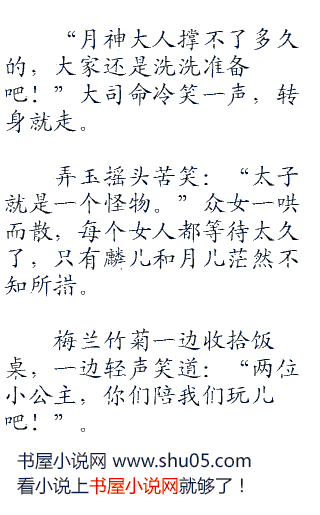 “月神大人撑不了多久
的，大家还是洗洗准备
吧！”大司命冷笑一声，转
身就走。
弄玉摇头苦笑：“太子
就是一个怪物。”众女一哄
而散，每个女人都等待太久
了，只有麟儿和月儿茫然不
知所措。
梅兰竹菊一边收拾饭
桌，一边轻声笑道：“两位
小公主，你们陪我们玩儿
吧！”。
书屋小说网 www.shu05.com
看小说上书屋小说网就够了！